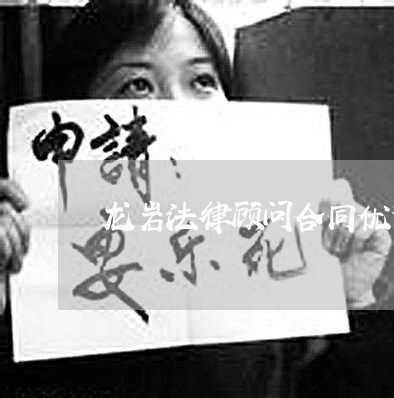 申請：
龙岩法律顾问合同优
安乐死